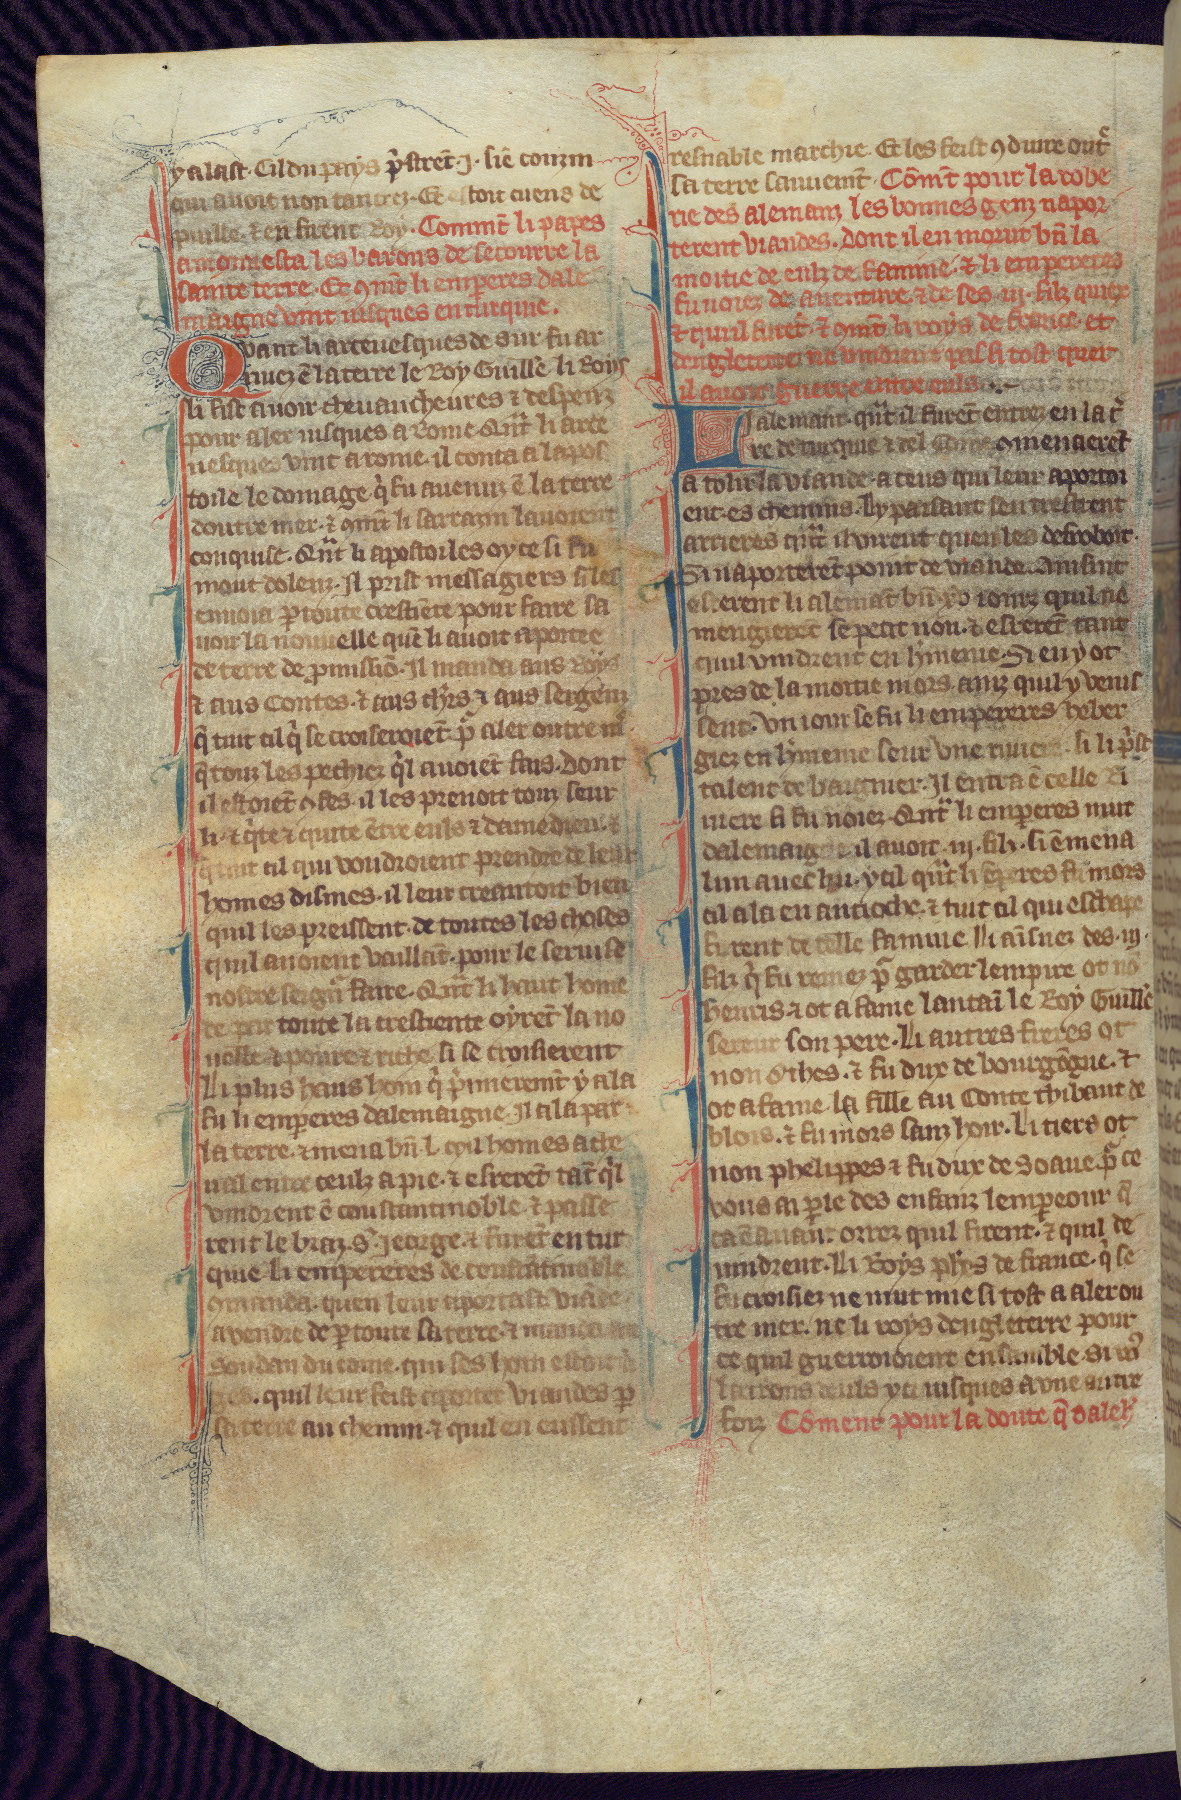 y alast. Cil du pays p̃strẽt .j. sien cousin
qui auoit non tancrez. Et estoit cuens de
puille. ⁊ en firent Roy. Commẽt li papes
amonnesta les barons de secourre la
sainte terre. Et ꝯmẽt li emperes dale
maigne vint iusques en turquie.
Quant li arceuesques de sur fu ar
riuez ẽ la terre le Roy Guille. li Roys
li fist auoir cheuaucheures ⁊ despens
pour aler iusques a Rome. Quãt li arce
uesques vint a rome. il conta a lapos
toile le domage q̃ fu auenuz ẽ la terre
doutre mer. ⁊ ꝯmẽt li sarrazin lauoient
conquise. Quãt li apostoiles oy ce si fu
mout dolenz. Il prist messagiers si les
enuoia p̱ toute crestiẽte pour faire sa
uoir la nouuelle que li auoit aportee
de terre de promissiõ. Il manda aus Roys
⁊ aus Contes. ⁊ aus chrs ⁊ aus sergenz
q̃ tuit cil q̃ se croiseroiẽt p̃ aler outre m̃
q̃ touz les pechiez q̃l auoiẽt fais. dont
il estoiẽt ꝯfes. il les prenoit touz seur
li. ⁊ q̃te ⁊ quite ẽtre euls ⁊ damedieu. ⁊
q̃ tuit cil qui voudroient prendre de leur
homes dismes. il leur creantoit bien
quil les preissent. de toutes les choses
quil auoient vaillãt. pour le seruise
nostre seign̄ faire. Quãt li haut home
de par toute la crestiente oyrẽt la no
uelle. ⁊ poure ⁊ riche si se croisierent
Li plus haus hom q̃ p̃mieremẽt y ala
fu li emperes dalemaigne. Il ala par
la terre. ⁊ mena bñ .L. mil homes a che
ual entre ceulz a pie. ⁊ esrerẽt tãt q̃l
vindrent ẽ coustantinoble. ⁊ passe
rent le braz. S. Jeorge. ⁊ furẽt en tur
quie. li empereres de constãtinoble
ꝯmanda. quen leur aportast viãde
a vendre de p̱ toute sa terre. ⁊ manda au
Soudan du coine. qui ses hom estoit
quil leur feist aporter viandes p̱
sa terre au chemin. ⁊ quil en eussent
resnable marchie. Et les feist ꝯduire outr̃
sa terre sauuemẽt. Cõmẽt pour la robe
rie des alemanz les bonnes genz napor
terent viandes. dont il en morut bñ la
moitie de eulz de famine. ⁊ li empereres
fu noiez de auenture ⁊ de ses .iij. filz quiex
⁊ quil furẽt. ⁊ ꝯmẽt li roys de france. et
dengleterre ne vindrent pas si tost quer
il auoit guerre entre euls.
Li alemant. quãt il furẽt entrez en la t̃
re de turquie ⁊ del Coine ꝯmencierẽt
a tolir la viande. a ceus qui leur aportoi
ent. es chemins. Ly paisant sen trestrent
arrieres quãt il virent quen les desroboit.
Si naporterẽt point de viande. Ainsint
esrerent li alemãt bñ .xv. iourz quil ne
mengierẽt se petit non. ⁊ esrerẽt tant
quil vindrent en hermenie. Si en y ot
pres de la moitie mors. ainz quil y venis
sent. Vn iour se fu li empereres heber
giez en hermenie seur vne riuiere. si li p̃st
talent de baignier. Il entra ẽ celle Ri
uiere si fu noiez. Quãt li emperes mut
dalemaigne il auoit .iij. filz. si ẽ mena
lun auec lui. ycil quãt li peres fu mors
cil ala en antioche. ⁊ tuit cil qui eschape
furent de celle famine. Li aisnez des .iij.
filz q̃ fu remez p̃ garder lempire ot nõ
henris ⁊ ot a fame lantaĩ le Roy Guille
sereur son pere. Li autres freres ot
non othes. ⁊ fu dux de bourgõgne. ⁊
ot a fame la fille au Conte thibaut de
blois. ⁊ fu mors sanz hoir. Li tiers ot
non phelippes ⁊ fu dux de Soaue. p̃ ce
vous ai p̱le des enfanz lempereour q̃
ca ẽ auant orrez quil firent. ⁊ quil de
uindrent. Li Roys phs de france. q̃ se
fu croisiez ne mut mie si tost a aler ou
tre mer. ne li roys dengleterre pour
ce quil guerroioient ensamble. Si vꝰ
lairons deuls yci iusques a vne autre
foiz Cõment pour la doute q̃ saleh̃